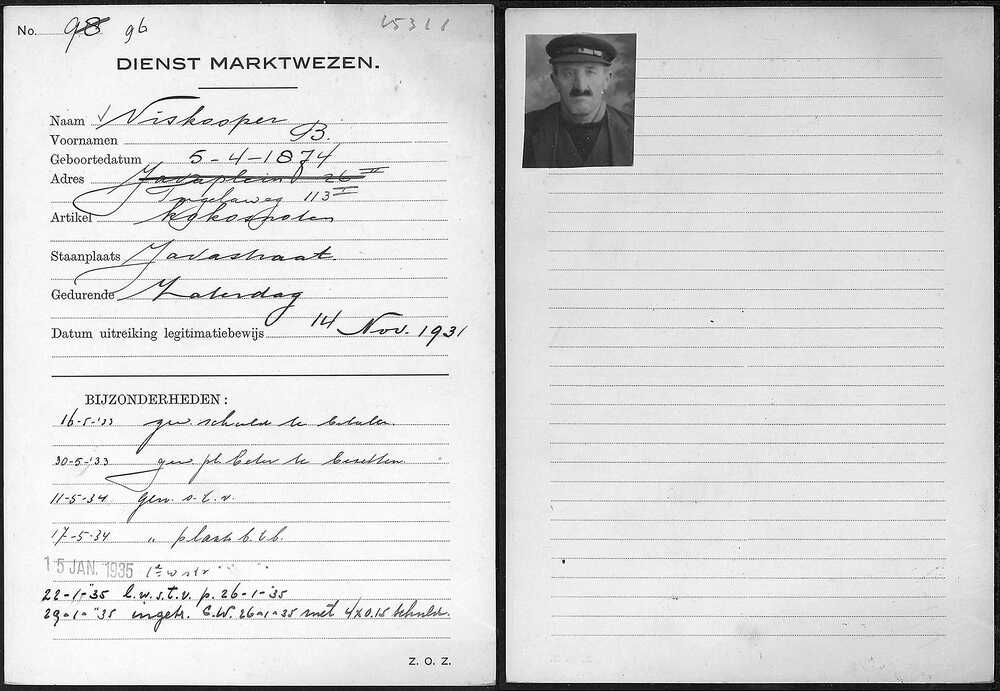 No. 98 96 45311
DIENST MARKTWEZEN.
Naam Viskooper
Voornamen B.
Geboortedatum 5-4-1874
Adres Javaplein 26 II
Tugelaweg 113 I
Artikel kokosnoten
Staanplaats Javastraat.
Gedurende Zaterdag
Datum uitreiking legitimatiebewijs 14 Nov. 1931
BIJZONDERHEDEN:
16-5-'33 gew. schuld te betalen.
30-5-'33 gew. pl. beter te bezetten.
11-5-34 gew. s.t.v.
17-5-34 " plaats b.t.b.
15 JAN. 1935 1e w str
22-1-'35 l.w.s.t.v. p. 26-1-35
29-1-'35 ingetr. E.W. 26-1-35 met 4x0.15 schuld.
Z. O. Z.